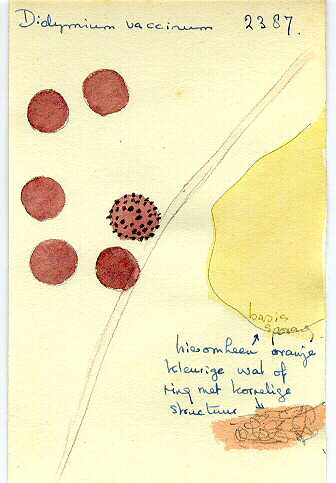 Didymium vaccinum 2387.
basis
sporang.
hieromheen oranje
kleurige wal of
ring met korrelige
structuur